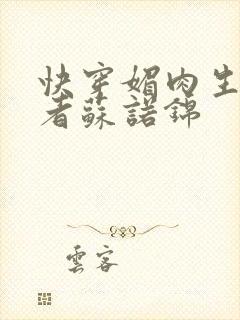 快穿媚肉生
者蘇諾錦
雲客